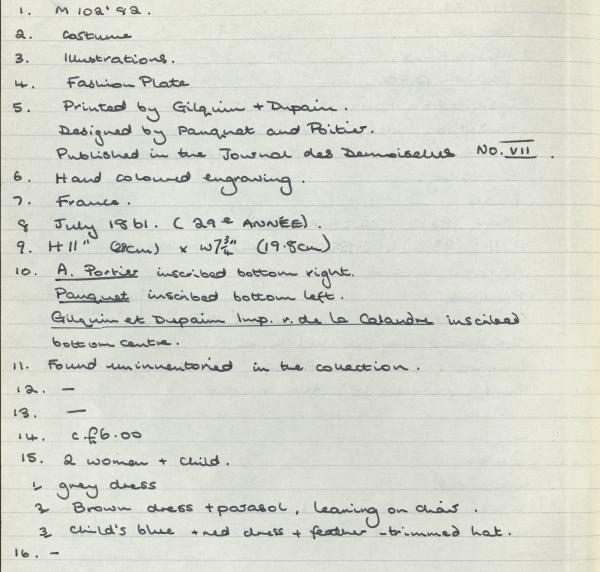 1. M 102'82.
2. Costume
3. Illustrations.
4. Fashion Plate
5. Printed by Gilquin + Dupain.
Designed by Pauquet and Poitier.
Published in the Journal des Demoiselles No. VII.
6. Hand coloured engraving.
7. France.
8 July 1861. (29e ANNÉE).
9. H 11" (28cm) x W7¾" (19.8cm)
10. A. Portier inscribed bottom right.
Pauquet inscribed bottom left.
Gilquin et Dupain Imp. r. de la Calandre inscribed
bottom centre.
11. Found uninventoried in the collection.
12. -
13. —
14. c.£6.00
15. 2 women + child.
1, grey dress
2, Brown dress + parasol, leaning on chair.
3, Child's blue + red dress + feather-trimmed hat.
16. -